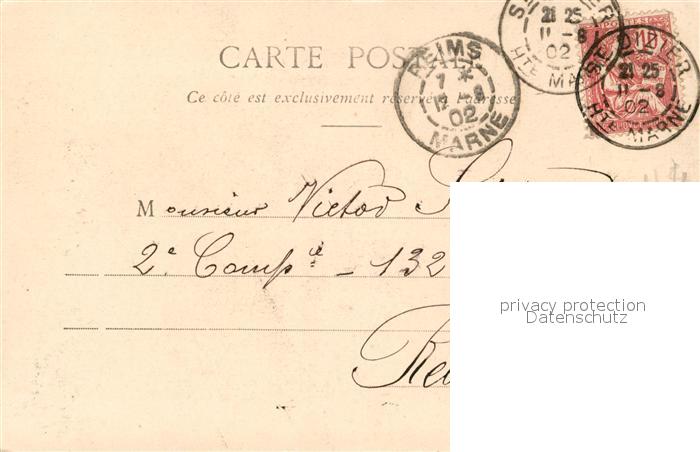 CARTE POSTALE
Ce côté est exclusivement réservé à l'adresse
REIMS
7 *
12 - 8
02
MARNE
21 25
11 - 8
02
HTE MARNE
POSTES
ST DIZIER
21 25
11 - 8
02
HTE MARNE
Monsieur Victor
2e Compie - 132
privacy protection
Datenschutz